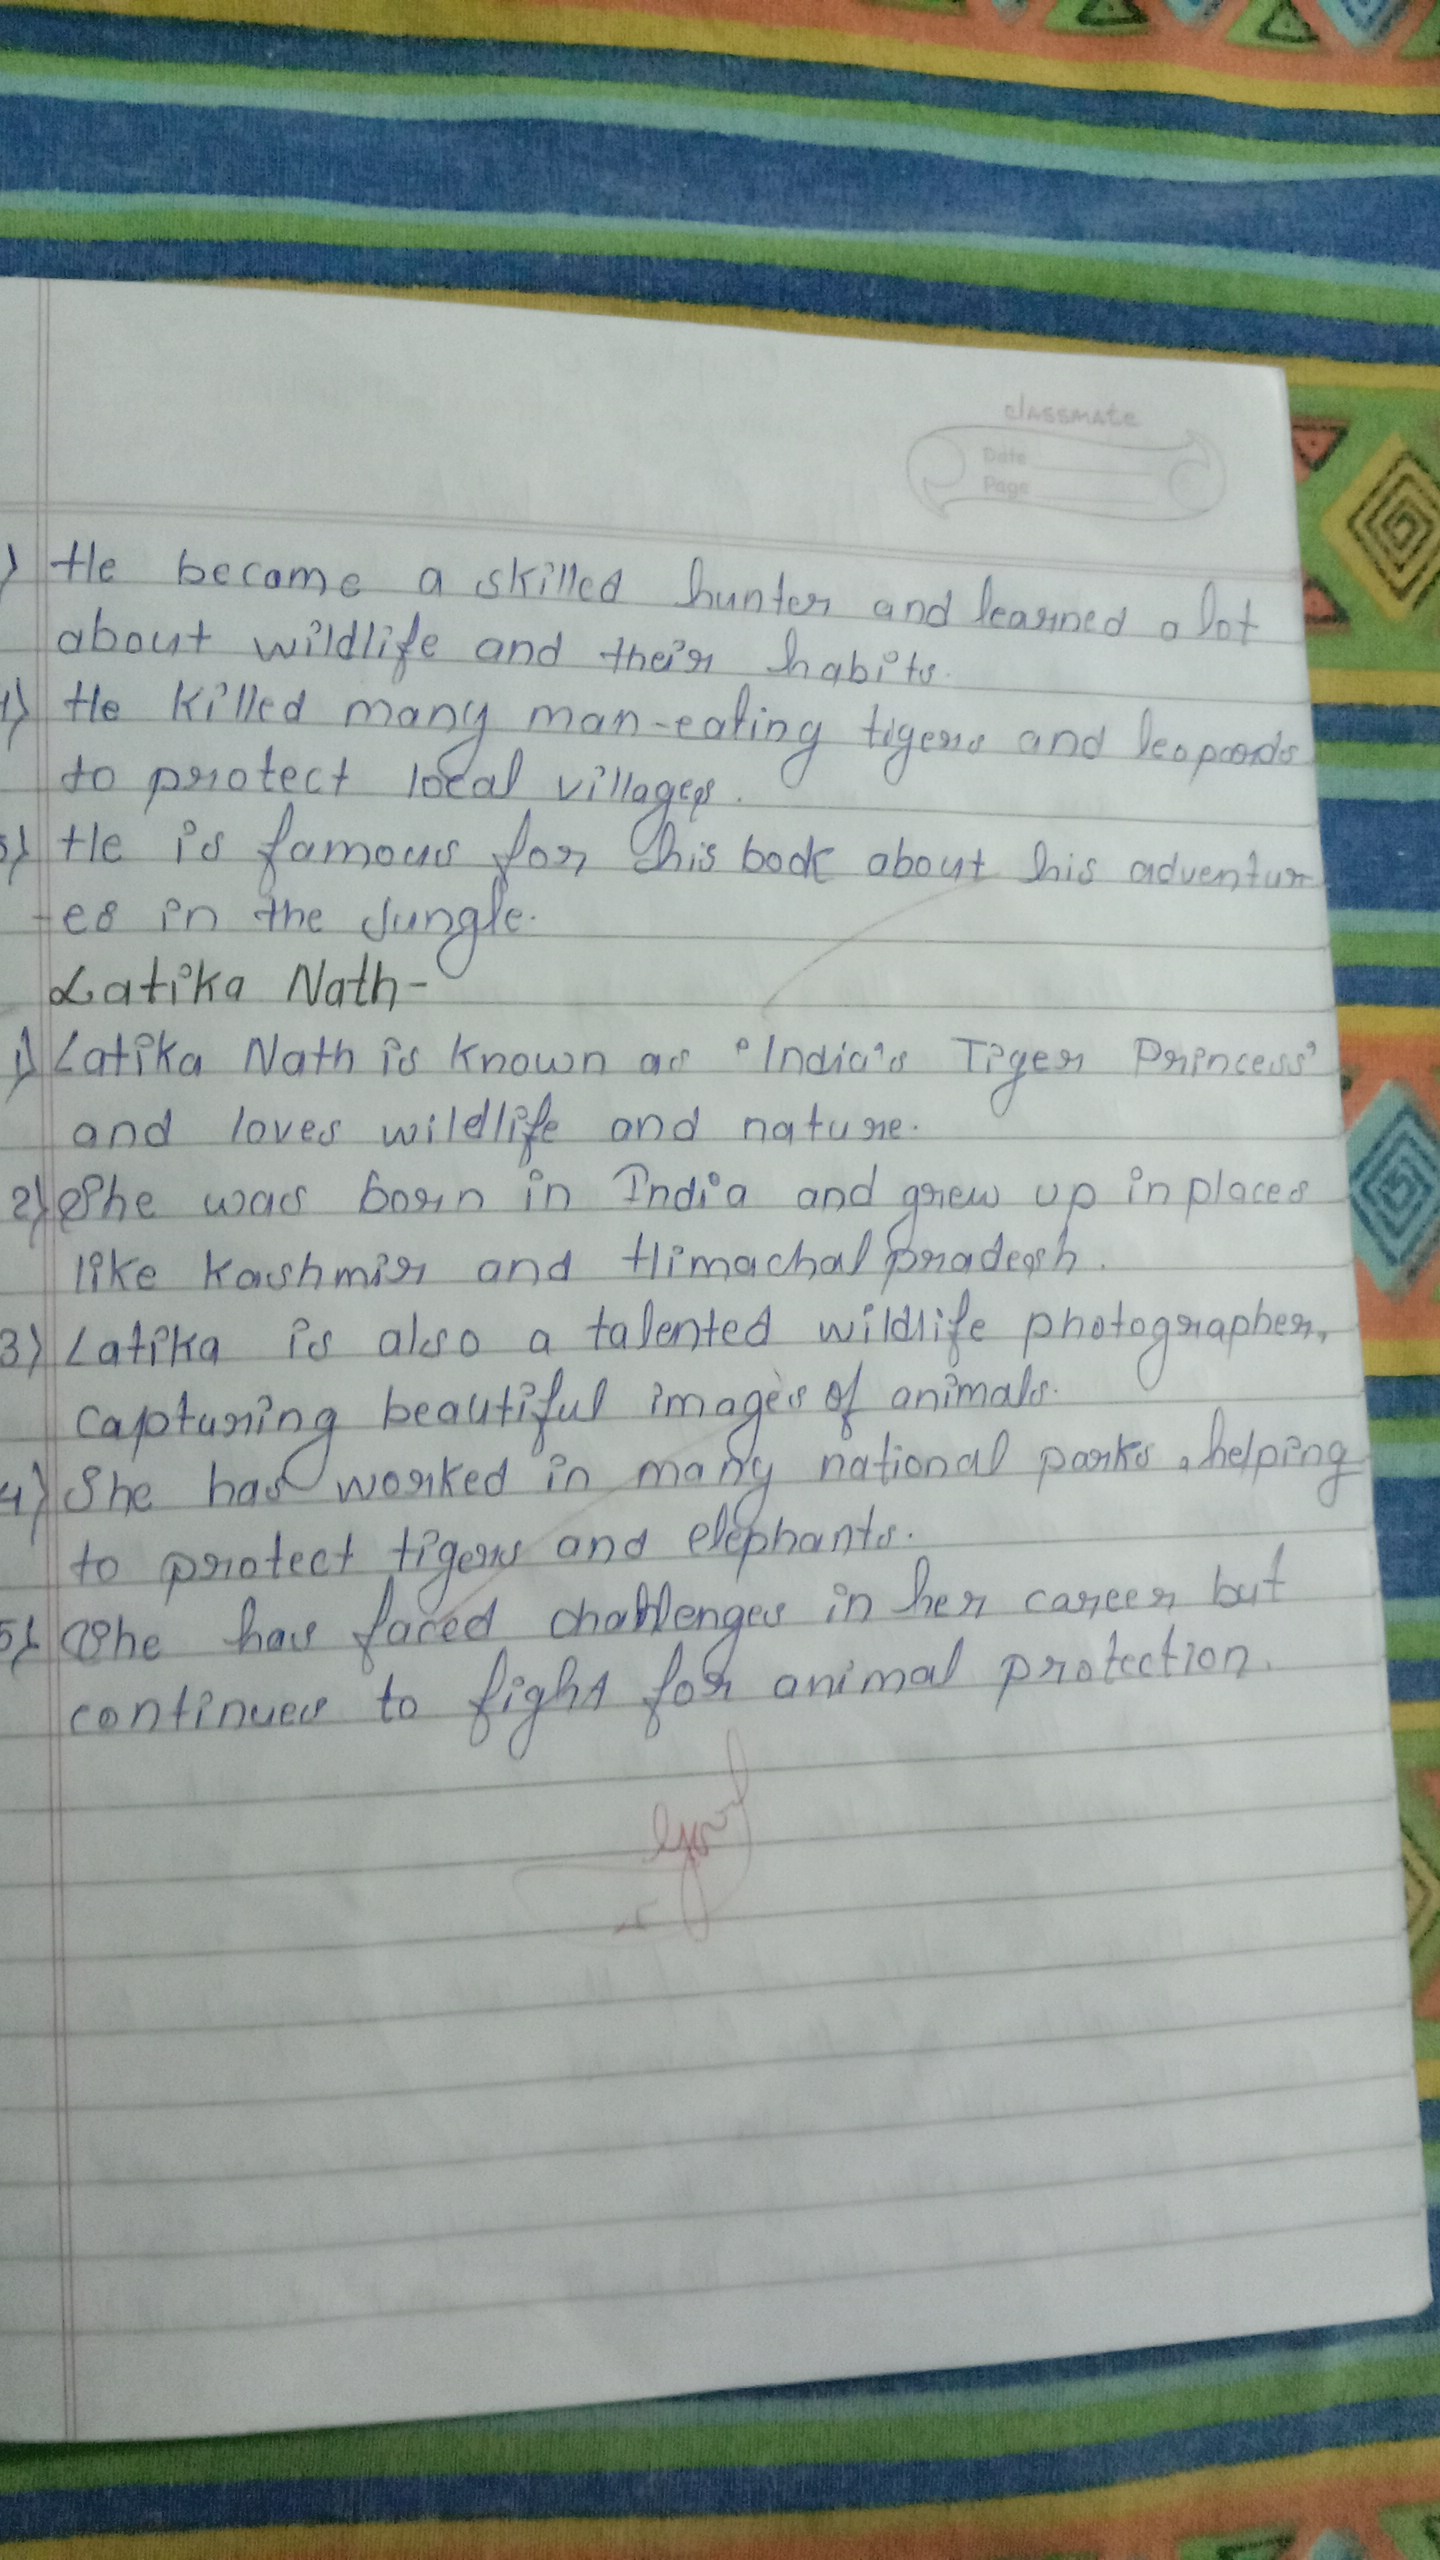 classmate
Date
Page
) He became a skilled hunter and learned a lot
about wildlife and their habits.
4) He killed many man-eating tigers and leopards
to protect local villages.
5) He is famous for his book about his adventur
-es in the Jungle.
Latika Nath-
1) Latika Nath is known as "India's Tiger Princess"
and loves wildlife and nature.
2) She was born in India and grew up in places
like Kashmir and Himachal pradesh.
3) Latika is also a talented wildlife photographer,
capturing beautiful images of animals.
4) She has worked in many national parks, helping
to protect tigers and elephants.
5) She has faced challenges in her career but
continues to fight for animal protection.